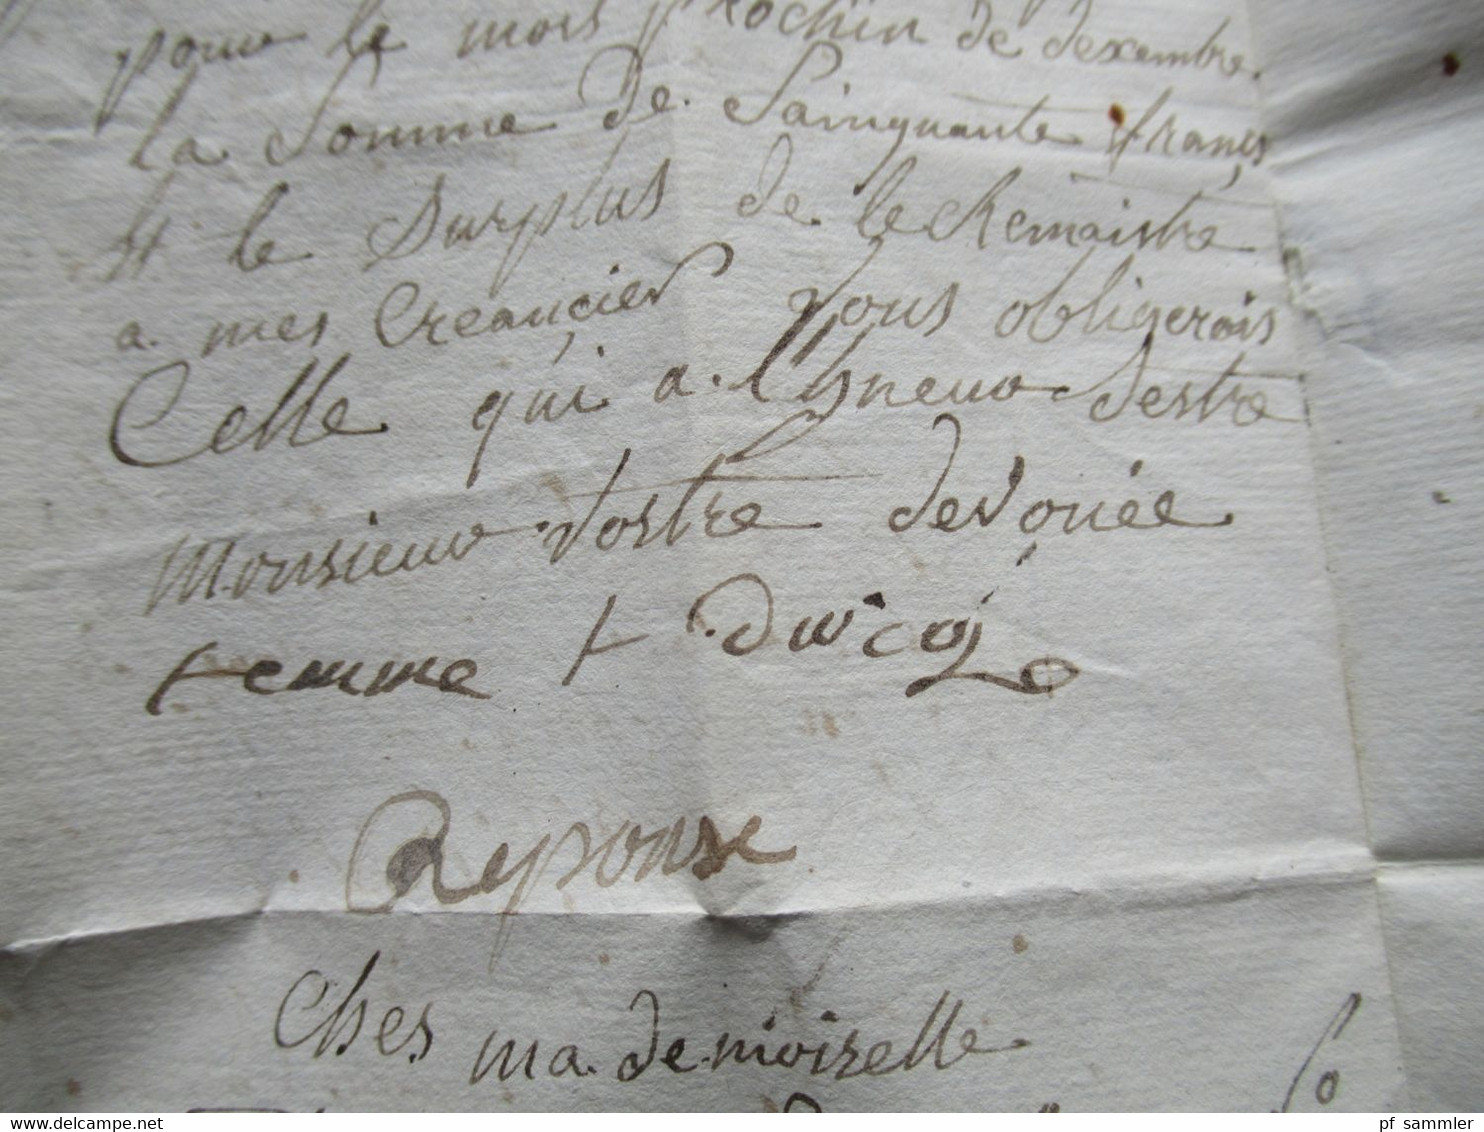 pour le mois prochin de dexembre.
la Somme de Sainquante francs
et le surplus de le Remaistre
a mes Creançier vous obligerois
Celle qui a l'hneur destre
Monsieur vostre devouée
femme + Ducoz
Reponse
Ches ma demoiselle
delcampe.net
pf_sammler